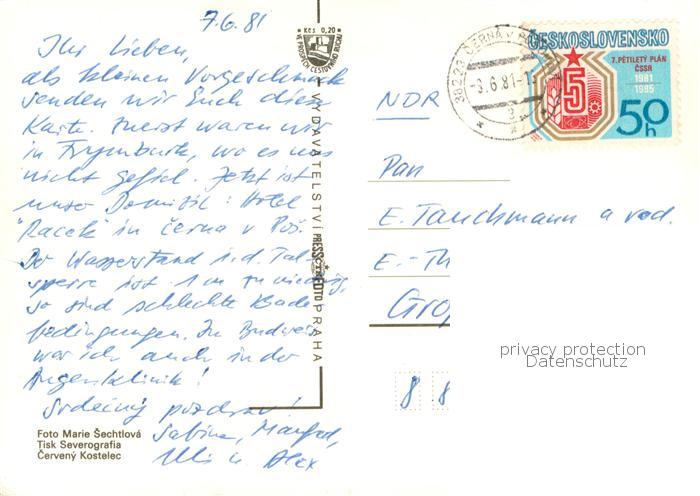 7.6.81
Ihr Lieben,
als kleinen Vorgeschmack
senden wir Euch diese
Karte. Zuerst waren wir
in Frymburk, wo es uns
nicht gefiel. Jetzt ist
unser Domizil: Hotel
"Racek" in Černa v Poš.
Der Wasserstand i.d. Tal-
sperre ist 1 m zu niedrig,
so sind schlechte Bade-
bedingungen. In Budweis
war ich auch in der
Augenklinik!
Srdečný pozdrav!
Sabine, Manfred,
Ulli u. Alex
Foto Marie Šechtlová
Tisk Severografia
Červený Kostelec
Kčs 0,20
VE PROSPĚCH CESTOVNÍHO RUCHU
VYDAVATELSTVÍ PRESSFOTO PRAHA
382 23 ČERNÁ V
-9.6.81-1
ČESKOSLOVENSKO
7. PĚTILETÝ PLÁN
ČSSR
1981
1985
5
50h
NDR
Pan
E. Tauchmann a rod.
E.-Th
Gro
8 8
privacy protection
Datenschutz